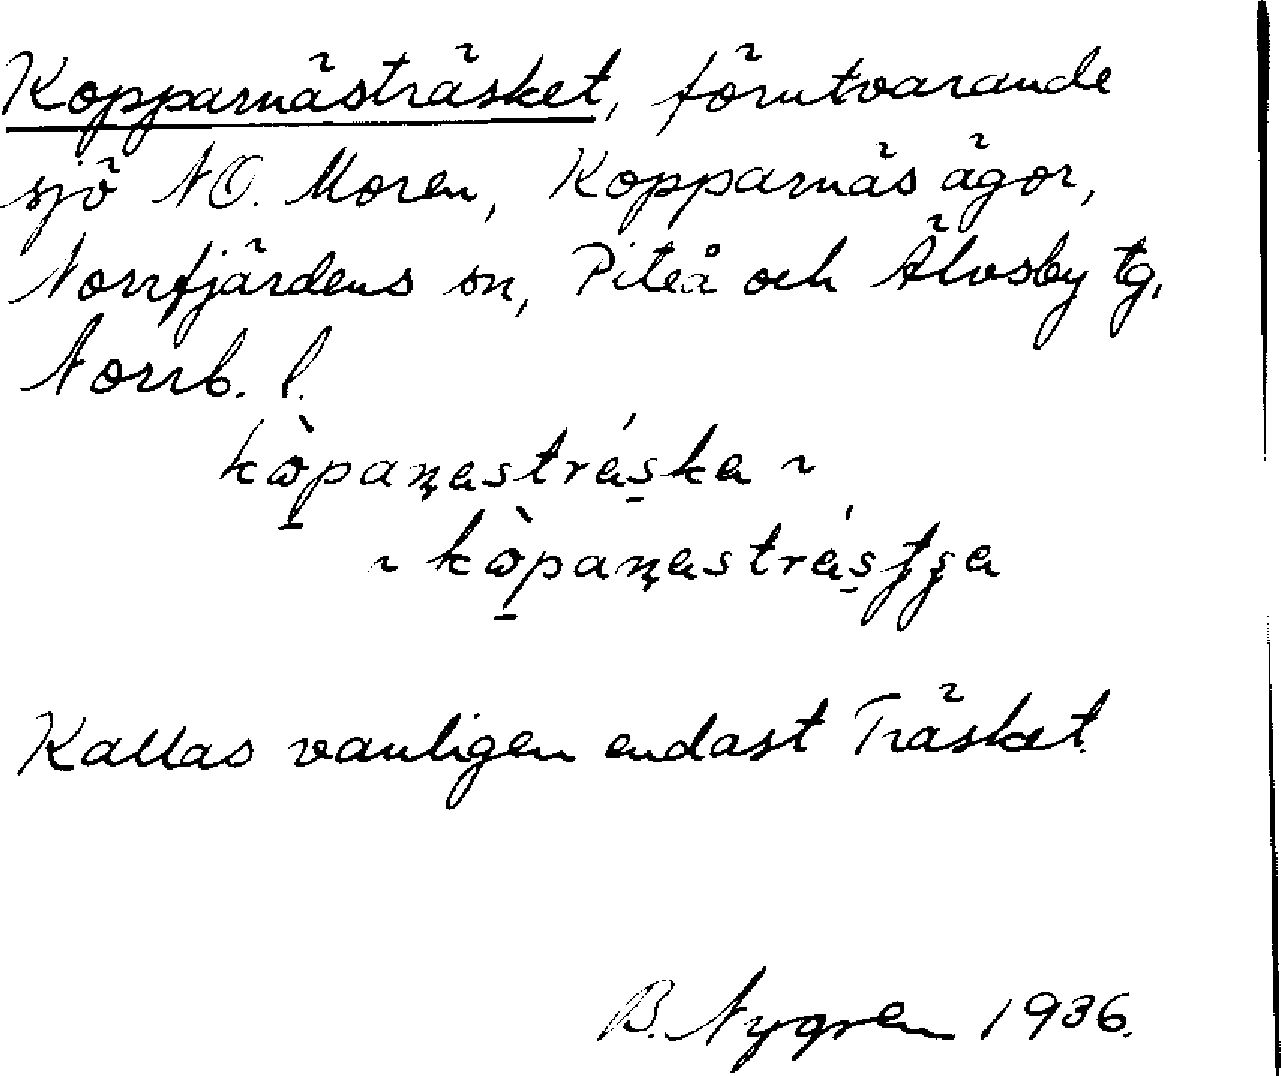 Kopparnästräsket, förutvarande
sjö NO. Moren, Kopparnäs ägor,
Norrfjärdens sn, Piteå och Älvsby tg,
Norrb. l.
kòpaṇastráska ~
~ kòpaṇastrástʃa
Kallas vanligen endast Träsket.
B. Nygren 1936.